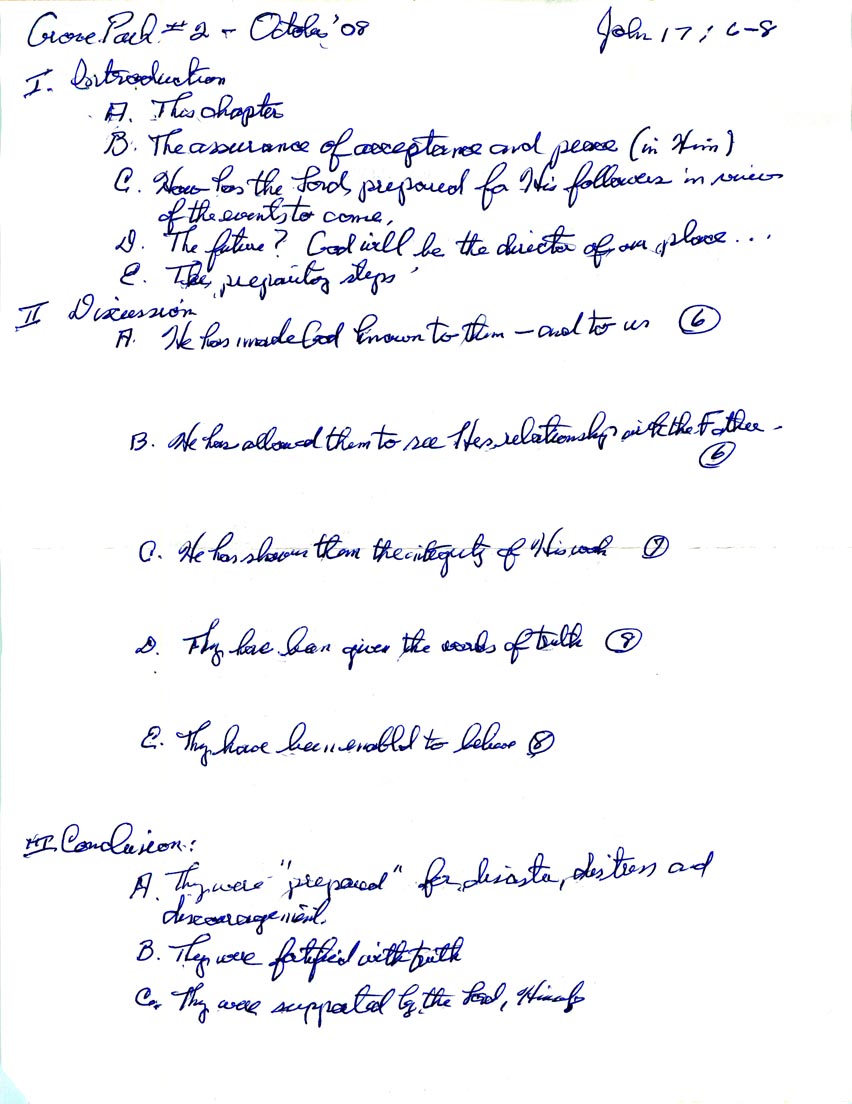 Grove Park #2 - October '08 John 17: 6-8
I. Introduction
A. This chapter
B. The assurance of acceptance and peace (in Him)
C. How has the Lord prepared for His followers in view
of the events to come,
D. The future? God will be the director of our place...
E. The preparatory steps
II Discussion
A. He has made God known to them - and to us 6
B. He has allowed them to see His relationship with the Father.
6
C. He has shown them the integrity of His 7
D. They have been given the words of truth 8
E. They have been enabled to believe 8
III Conclusion:
A. They were "prepared" for disaster, distress and
discouragement.
B. They were fortified with truth
C. They were supported by the Lord, Himself